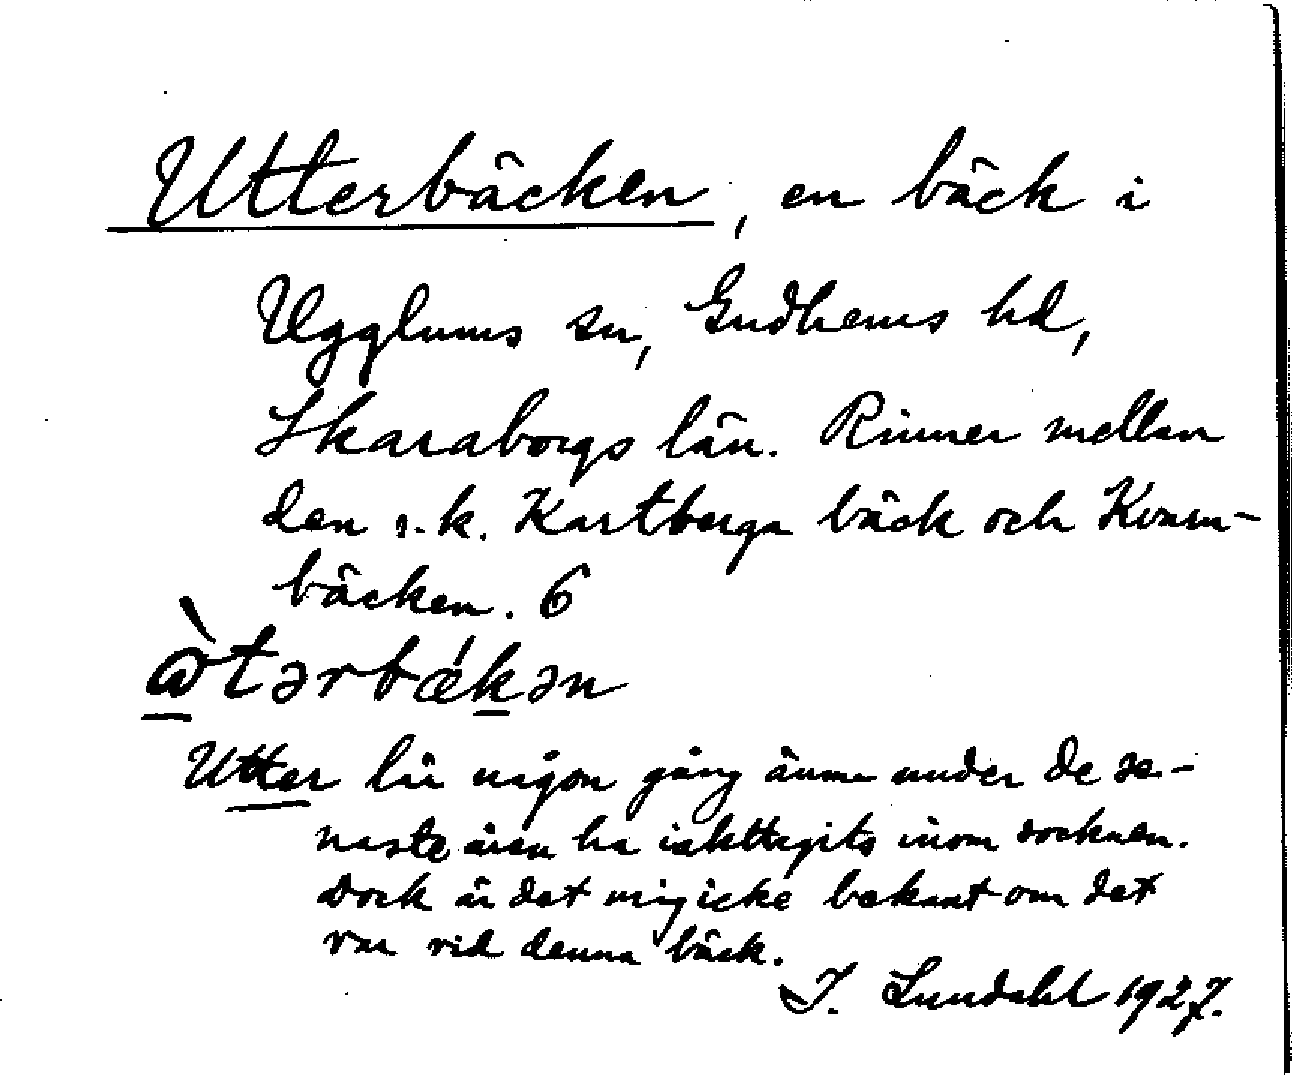 Utterbäcken, en bäck i
Ugglums sn, Gudhems hd,
Skaraborgs län. Rinner mellan
den s.k. Kartberga bäck och Kvarn-
bäcken. 6
ɷ̀tərbǽkən
Utter lär någon gång ännu under de se-
naste åren ha iakttagits inom socknen.
Dock är det mig icke bekant om det
var vid denna bäck.
I. Lundahl 1927.